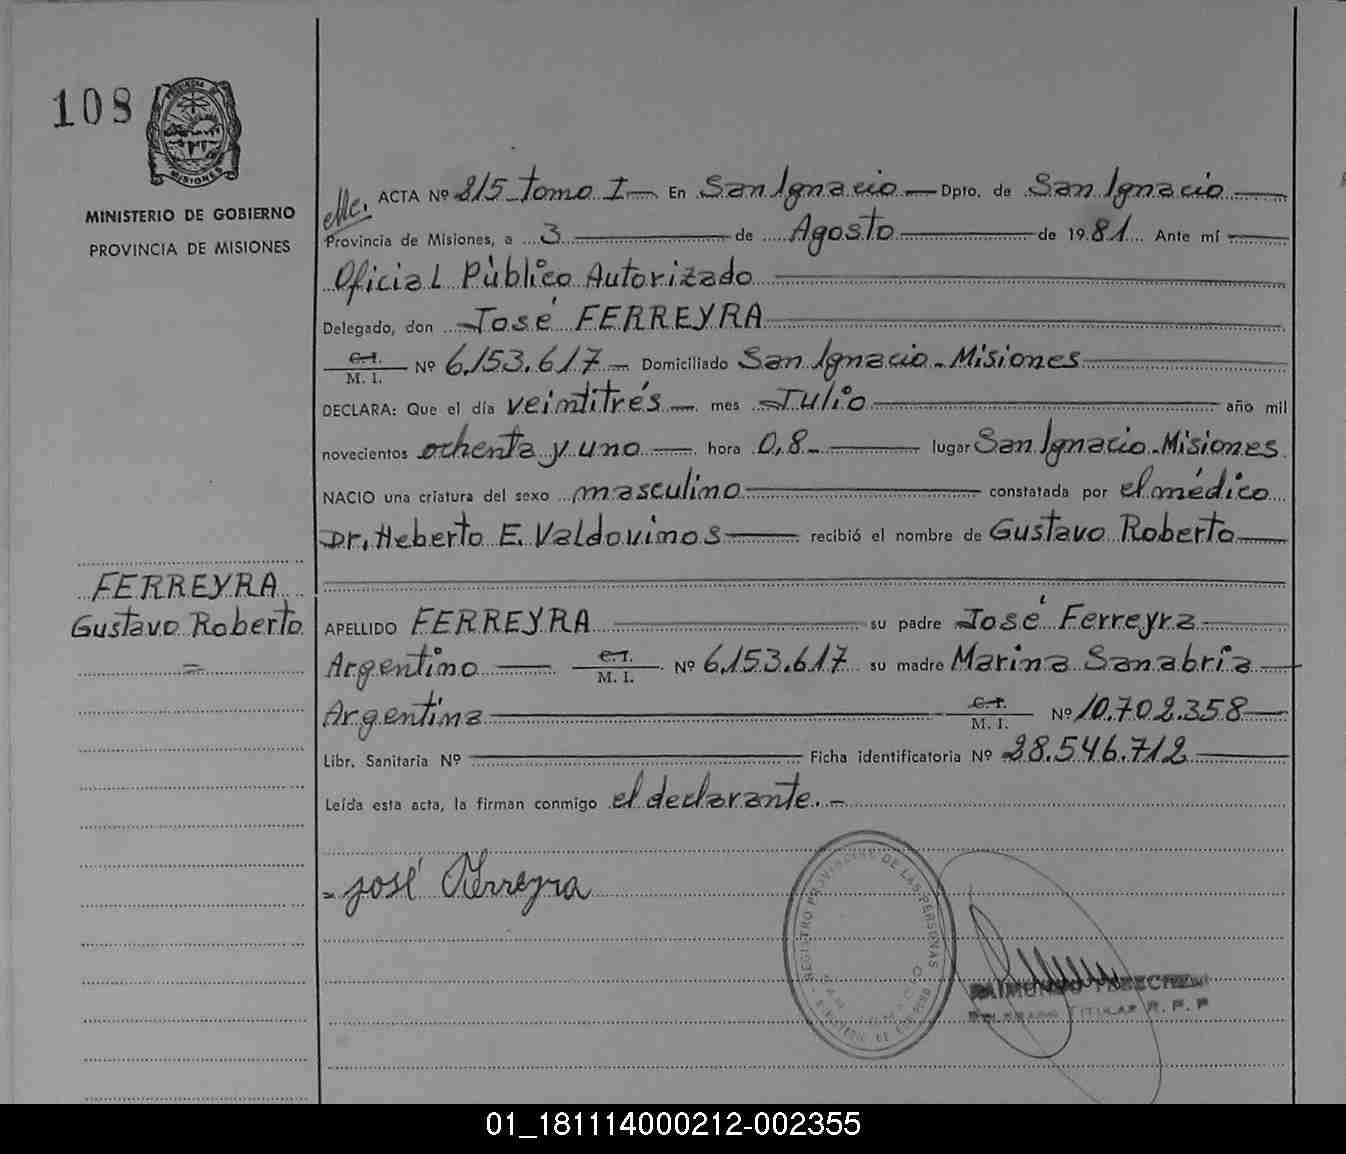 108
MISIONES
MINISTERIO DE GOBIERNO
PROVINCIA DE MISIONES
ACTA Nº 815 tomo I En San Ignacio Dpto. de San Ignacio
Provincia de Misiones, a 3 de Agosto de 1981 Ante mí
Oficial Público Autorizado
Delegado, don José FERREYRA
C.I. M. I. Nº 6.153.617 Domiciliado San Ignacio - Misiones
DECLARA: Que el día veintitrés mes Julio año mil
novecientos ochenta y uno hora 0,8 lugar San Ignacio - Misiones
NACIO una criatura del sexo masculino constatada por el médico
Dr. Heberto E. Valdovinos recibió el nombre de Gustavo Roberto
FERREYRA
Gustavo Roberto
APELLIDO FERREYRA su padre José Ferreyra
Argentino C.I. M. I. Nº 6.153.617 su madre Marina Sanabria
Argentina C.I. M. I. Nº 10.702.358
Libr. Sanitaria Nº Ficha identificatoria Nº 28.546.712
Leída esta acta, la firman conmigo el declarante. -
José Ferreyra
REGISTRO PROVINCIAL DE LAS PERSONAS
TITULAR R. P. P
01_181114000212-002355